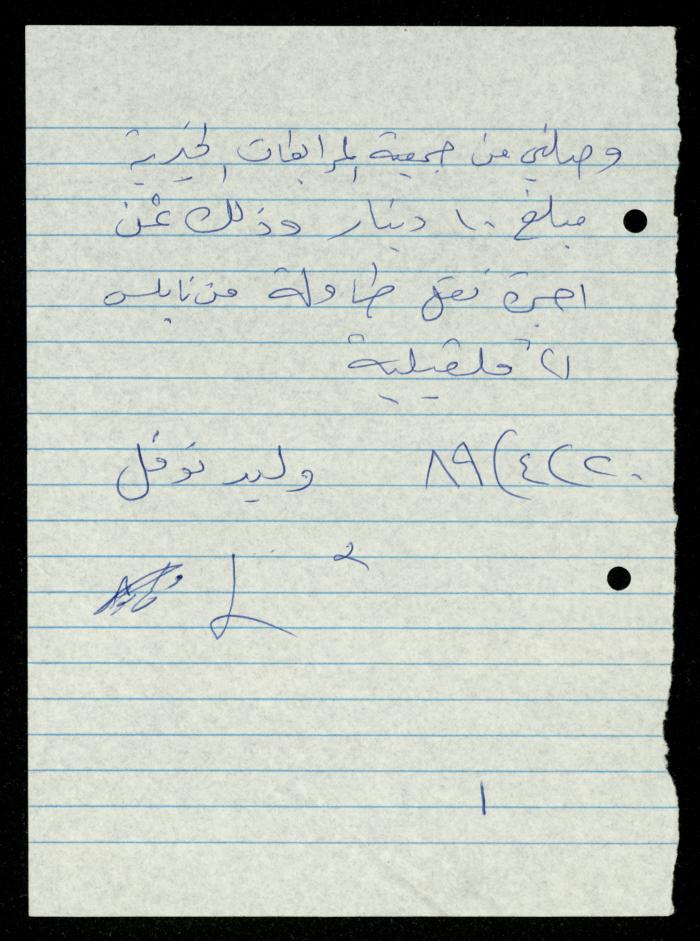 وصلني من جمعية المرابطات الخيرية
مبلغ ١٠ دينار وذلك ثمن
اجرة نقل طاولة من نابلس
الى قلقيلية
٢٠/٤/٨٩ وليد نوفل
١